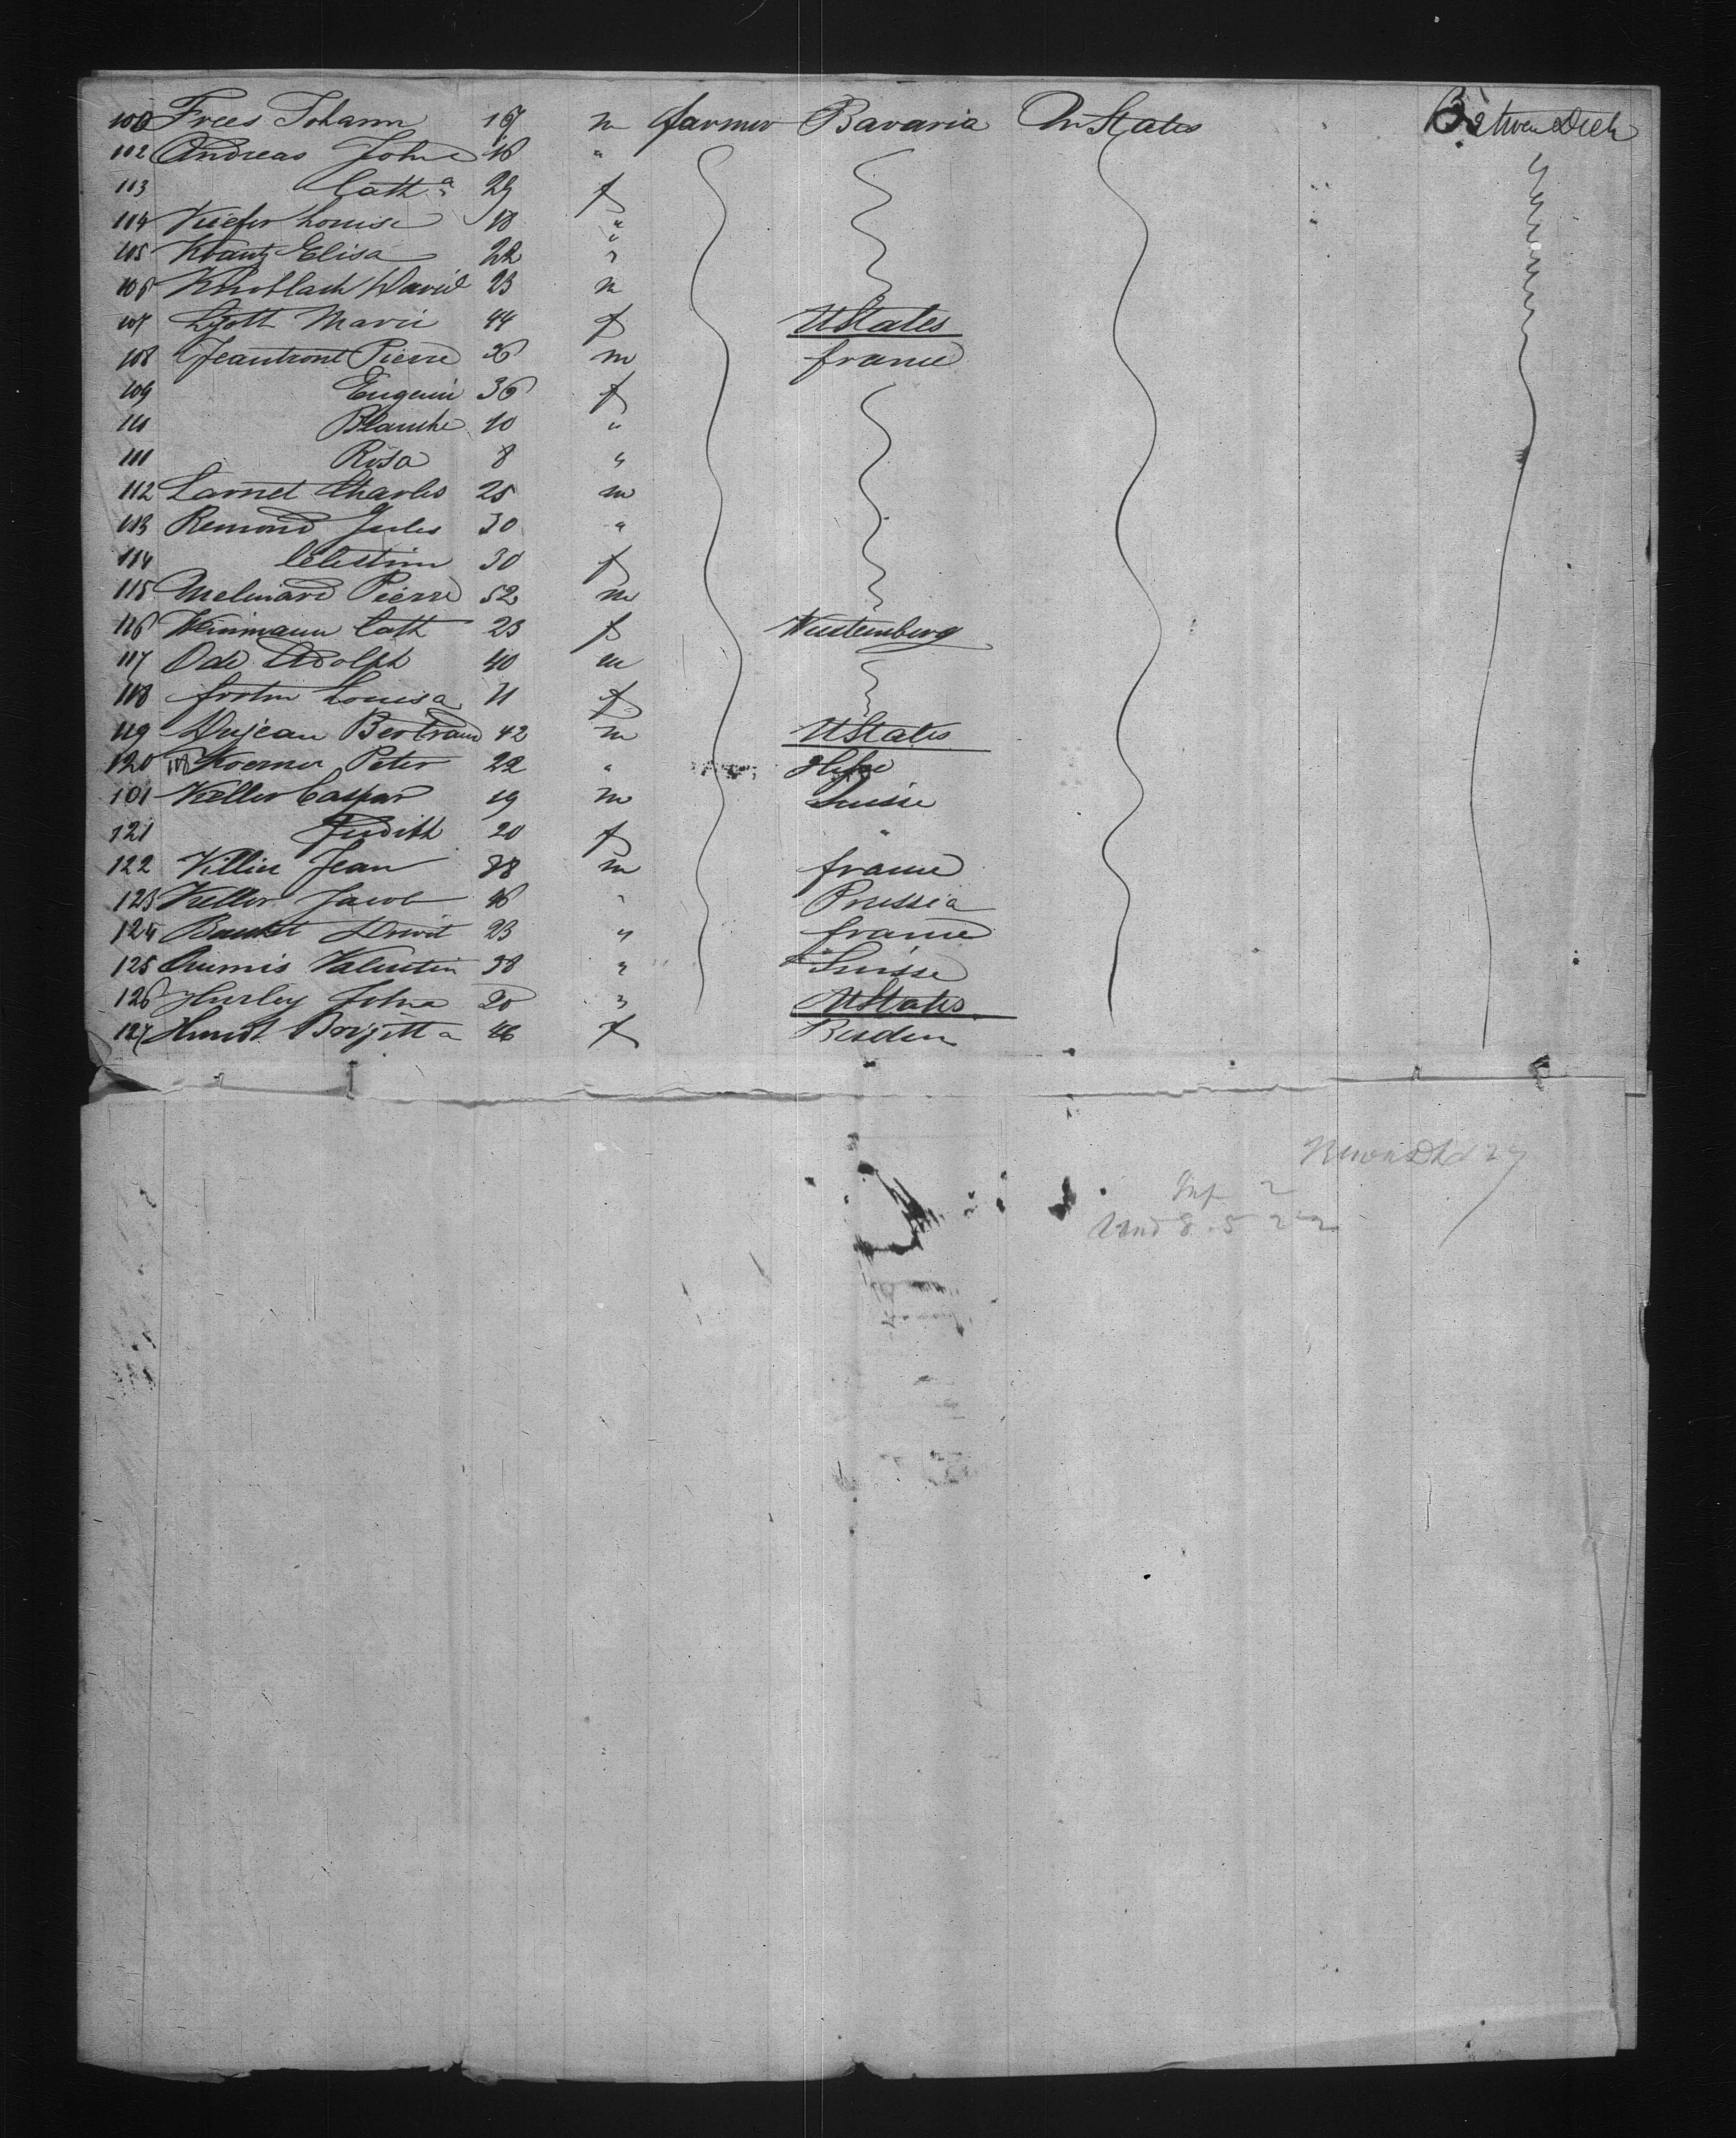 100 Frees Johann 16 m farmer Bavaria Un States Between Deck
102 Andreas John 18 "
113 Cath a 29 f
114 Kiefer Louise 18 "
105 Krantz Elisa 22 "
106 Knoblach David 23 m
107 Lyott Marie 44 f UStates
108 Jeantront Pierre 36 m france
109 Eugenie 36 f
110 Blanche 10 "
111 Rosa 8 "
112 Larnet Charles 25 m
113 Remond Jules 30 "
114 Celestine 30 f
115 Pierre 52 m
116 Weinmann Cath 23 f Wurtemberg
117 Ode Adolph 40 m
118 Louisa 11 f
119 Dujean Bertrand 42 m UStates
120 Koerner Peter 22 " Hesse
101 Keller Caspar 19 m Suisse
121 Judith 20 f "
122 Jean 38 m france
123 Keller Jacob 46 " Prussia
124 23 " france
125 Valentin 38 " Suisse
126 Hurley John 20 " UStates
127 Hundt Brigitta 46 f Baden
Inf 2
Und 8. 5 22